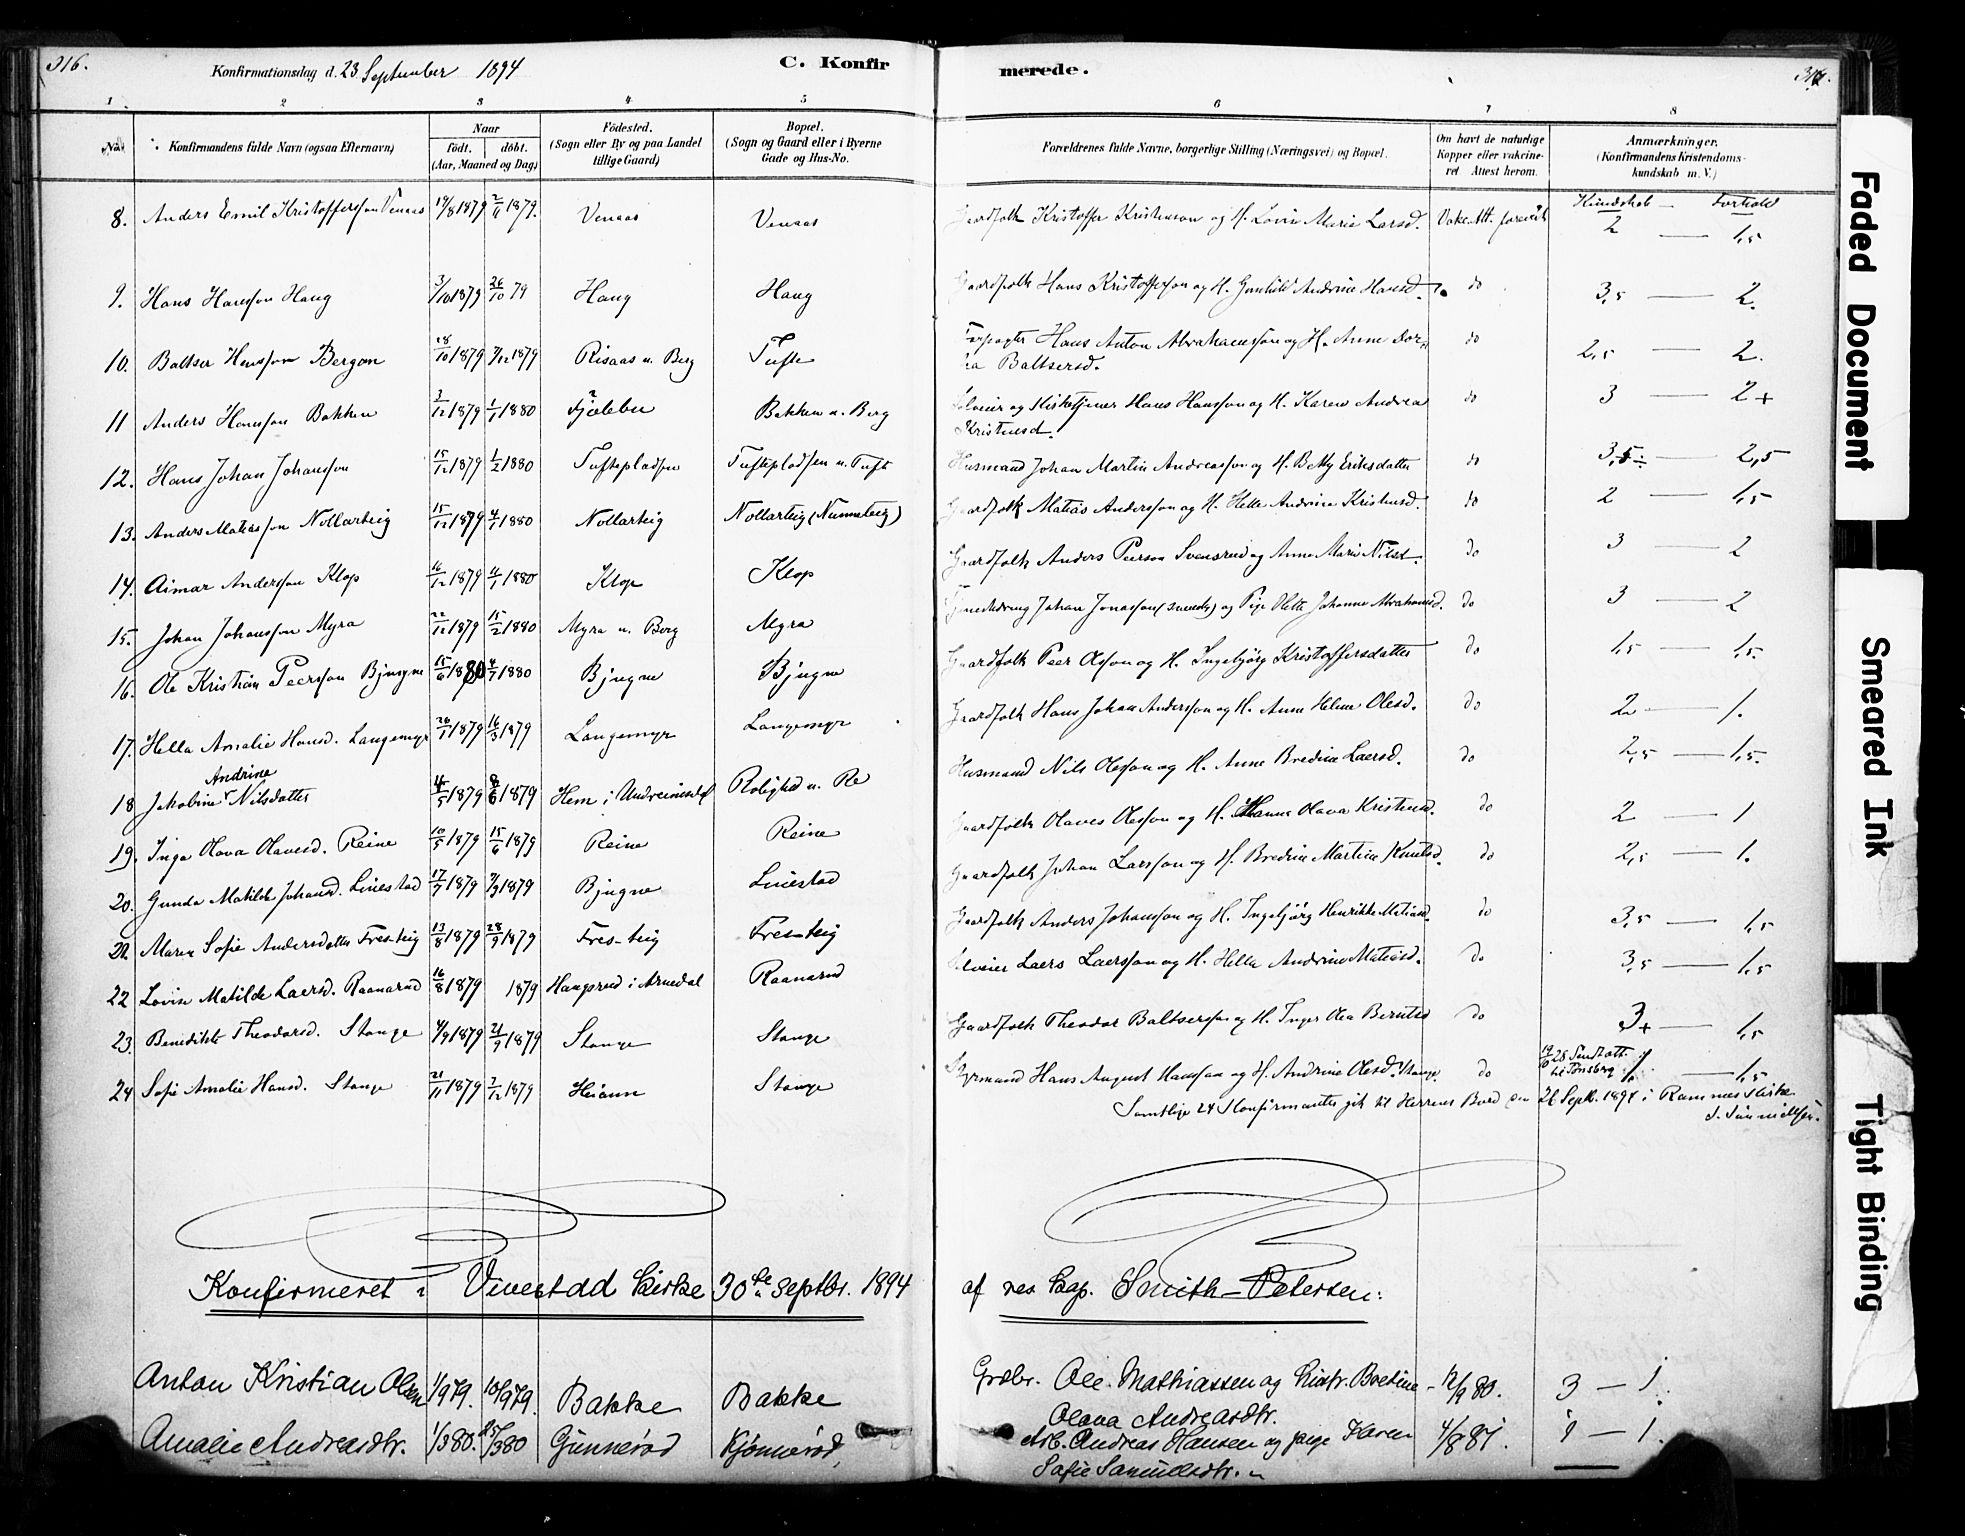 316.
Konfirmationsdag d. 23 September 1894
C. Konfir
merede.
1 2 3 4 5 6 7 8
No. Konfirmandens fulde Navn (ogsaa Efternavn)
Naar
født. døbt.
(Aar, Maaned og Dag)
Fødested.
(Sogn eller By og paa Landet
tillige Gaard)
Bopæl.
(Sogn og Gaard eller i Byerne
Gade og Hus-No.
Forældrenes fulde Navne, borgerlige Stilling (Næringsvei) og Bopæl.
Om havt de naturlige
Kopper eller vakcine-
ret Attest herom.
Anmærkninger.
(Konfirmandens Kristendoms-
kundskab m. V.)
Kundskab — Forhold
8. Anders Emil Kristoffersson Venaas 19/8 1879 2/11 1879. Venaas Venaas Gaardfolk Kristoffer Kristensson og H. Lovin Marie Larsd. Vakc. Att. forevist 2 — 1,5
9. Hans Hansson Haug 3/10 1879 26/10 79 Haug Haug Gaardfolk Hans Kristoffersson og H. Gunhild Andrine Hansd. do 3,5 — 2.
10. Baltser Hansson Bergan 18/10 1879 7/12 1879 Risaas u. Berg Tufte Forpagter Hans Anton Abrahamsson og H. Anne Dor..
ha Baltsersd. do 2,5 — 2.
11 Anders Hansson Bakken 3/12 1879 1/1 1880 Fjælebu Bakken u. Berg Selveier og Kirketjener Hans Hansson og H. Karen Andrea
Kristensd. do 3 — 2+
12. Hans Johan Johansson 15/12 1879 1/2 1880 Tuftepladsen Tuftepladsen u. Tuft Husmand Johan Martin Andreasson og H. Betty Eriksdatter do 3,5 — 2,5
13. Anders Matiasson Nollarteig 15/12 1879 4/1 1880 Nollarteig Nollarteig (Nunneteig) Gaardfolk Matias Andersson og H. Helle Andrine Kristensd. do 2 — 1,5
14. Aimar Andersson Klop 16/12 1879 11/1 1880 Klop Klop Gaardfolk Anders Peersson Svensrud og Anne Marie Nilsd. do 3 — 2
15. Johan Johansson Myra 22/12 1879 15/2 1880 Myra u. Berg Myra Tjenestedreng Johan Jonasson (svensk) og Pige Helle Johanne Abrahamsd. do 3 — 2
16. Ole Kristian Peersson Bjugne 15/6 1880 4/7 1880 Bjugne Bjugne Gaardfolk Peer Olsson og H. Ingebjørg Kristoffersdatter do 1,5 — 1,5.
17. Hella Amalie Hansd. Langemyr 26/1 1879 16/3 1879 Langemyr Langemyr Gaardfolk Hans Johan Andersson og H. Anne Helene Olesd. do 2 — 1.
Andrine
18 Jakobine Nilsdatter 4/5 1879 8/6 1879 Hem i Undreimsdal Rolighed u. Re Husmand Nils Olesson og H. Anne Bredine Laersd. do 2,5 — 1,5.
19. Inga Olava Olavesd. Reine 10/5 1879 15/6 1879 Reine Reine Gaardfolk Olaves Olesson og H. Hanna Olava Kristensd. do 2 — 1
20. Gunda Matilde Johansd. Linestad 17/7 1879 7/9 1879 Bjugne Linestad Gaardfolk Johan Larsson og H. Bredine Martine Knutsd. do 2,5 — 1.
21. Maren Sofie Andersdatter Fresteig 13/8 1879 28/9 1879 Fres-teig Fres-teig Gaardfolk Anders Johansson og H. Ingebjørg Henrikke Matiasd. do 3,5 — 1,5
22 Lovise Matilde Laersd. Raanarud 16/8 1879 1879 Haugsrud i Arnadal Raanarud Selveier Laers Laersson og H. Hella Andrine Matiasd. do 3,5 — 1,5
23. Benedikte Theodorsd. Stange 4/9 1879 21/9 1879 Stange Stange Gaardfolk Theodor Baltsersson og H. Inger Olea Berntsd do 3+ — 1,5
24 Sofie Amalie Hansd. Stange 21/11 1879 7/12 1879 Heiann Stange Styrmand Hans August Hansson og H. Andrine Olesd. Stange. do 19/10 28 Sendt att. til Tønsberg — 1,5
Samtlige 24 Konfirmanter gik til Herrens Bord den 26 Septb. 1894 i Ramnes Kirke
Konfirmeret i Vivestad Kirke 30te Septbr. 1894 af res. Kap. Smith-Petersen:
Anton Kristian Olsen 1/9 79. 10/9 79. Bakke Bakke Grdbr. Ole Mathiassen og Kristr. Boetine
Olava Andreasdtr. 12/9 80. 3 — 1.
Amalie Andreasdtr. 1/3 80. 25/3 80 Gunnerød Kjønnerød, Arb. Andreas Hansen og pige Karen
Sofie Samuelsdtr. 4/8 81. 1 — 1.
Faded Document
Smeared Ink
Tight Binding